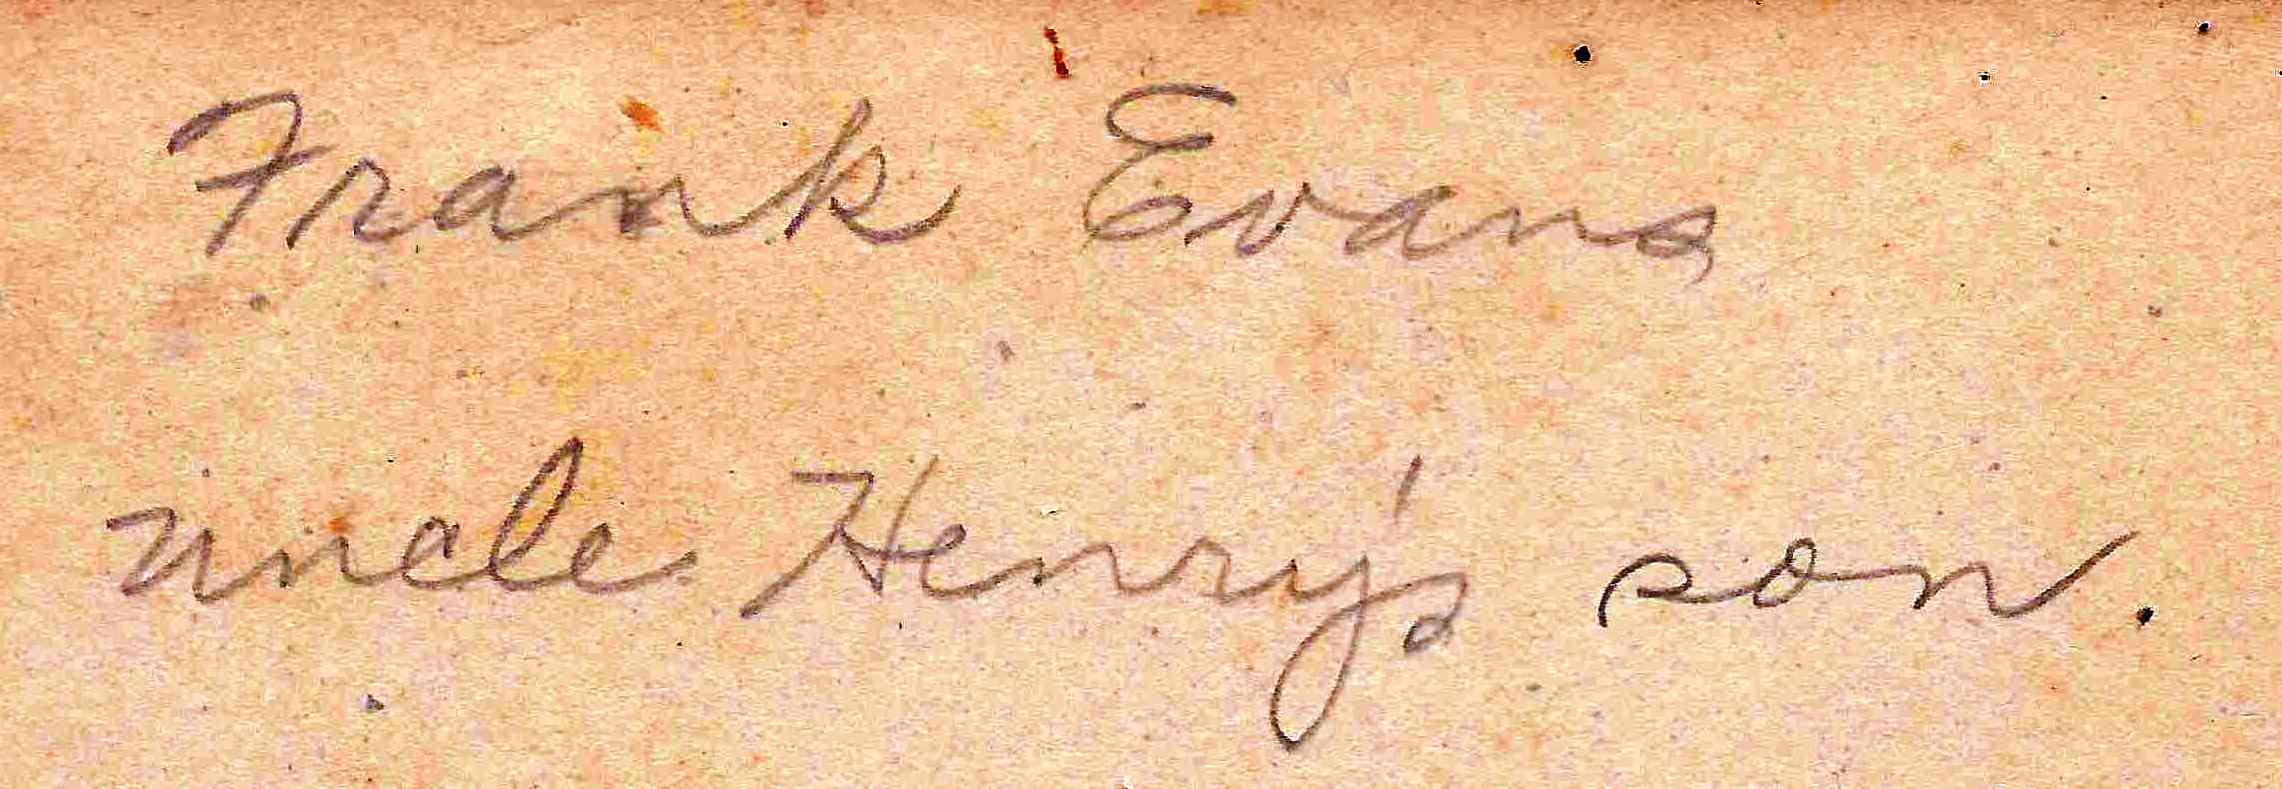 Frank Evans
uncle Henry's son.